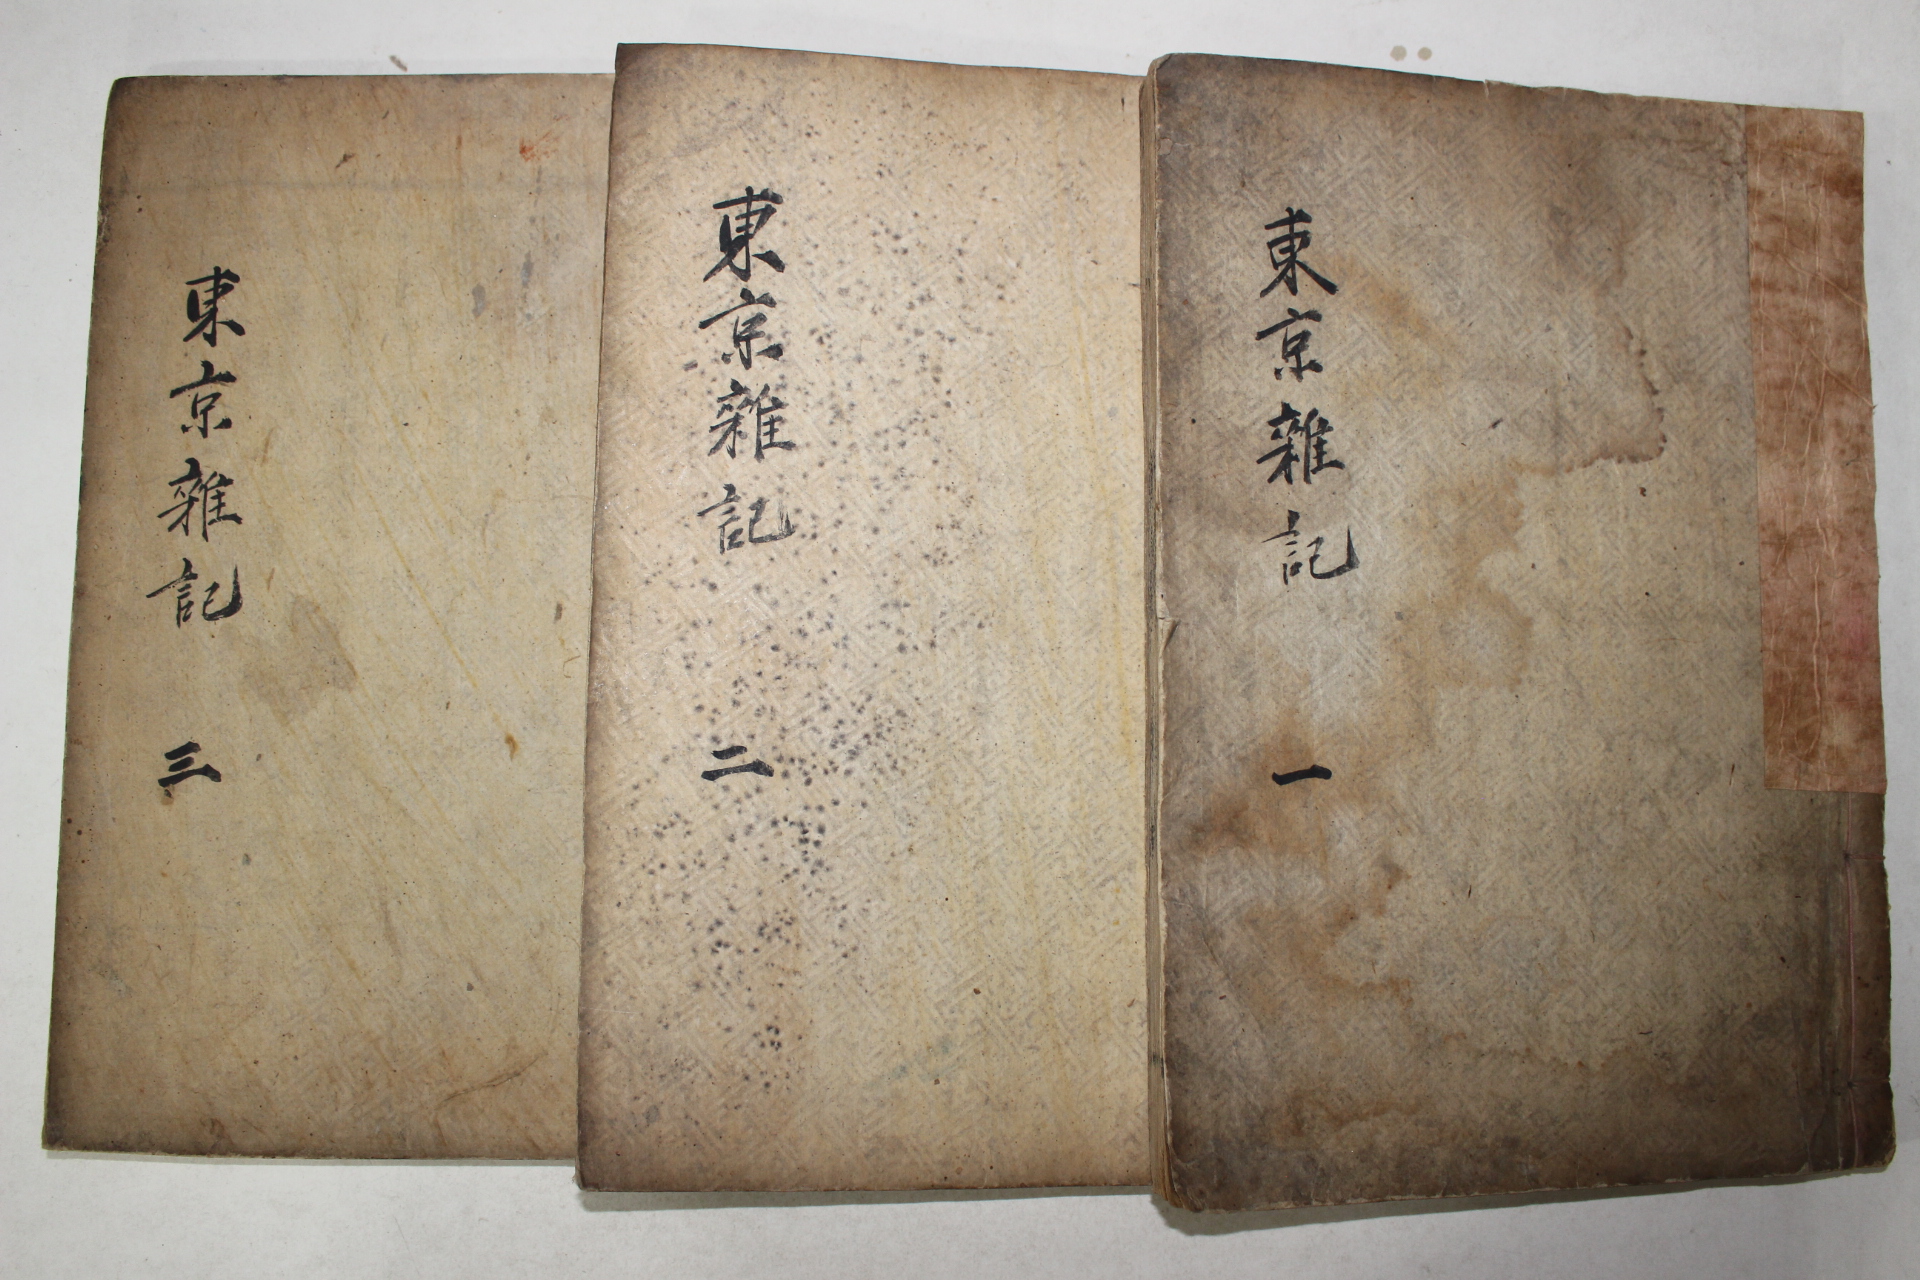 東京雜記 一
東京雜記 二
東京雜記 三